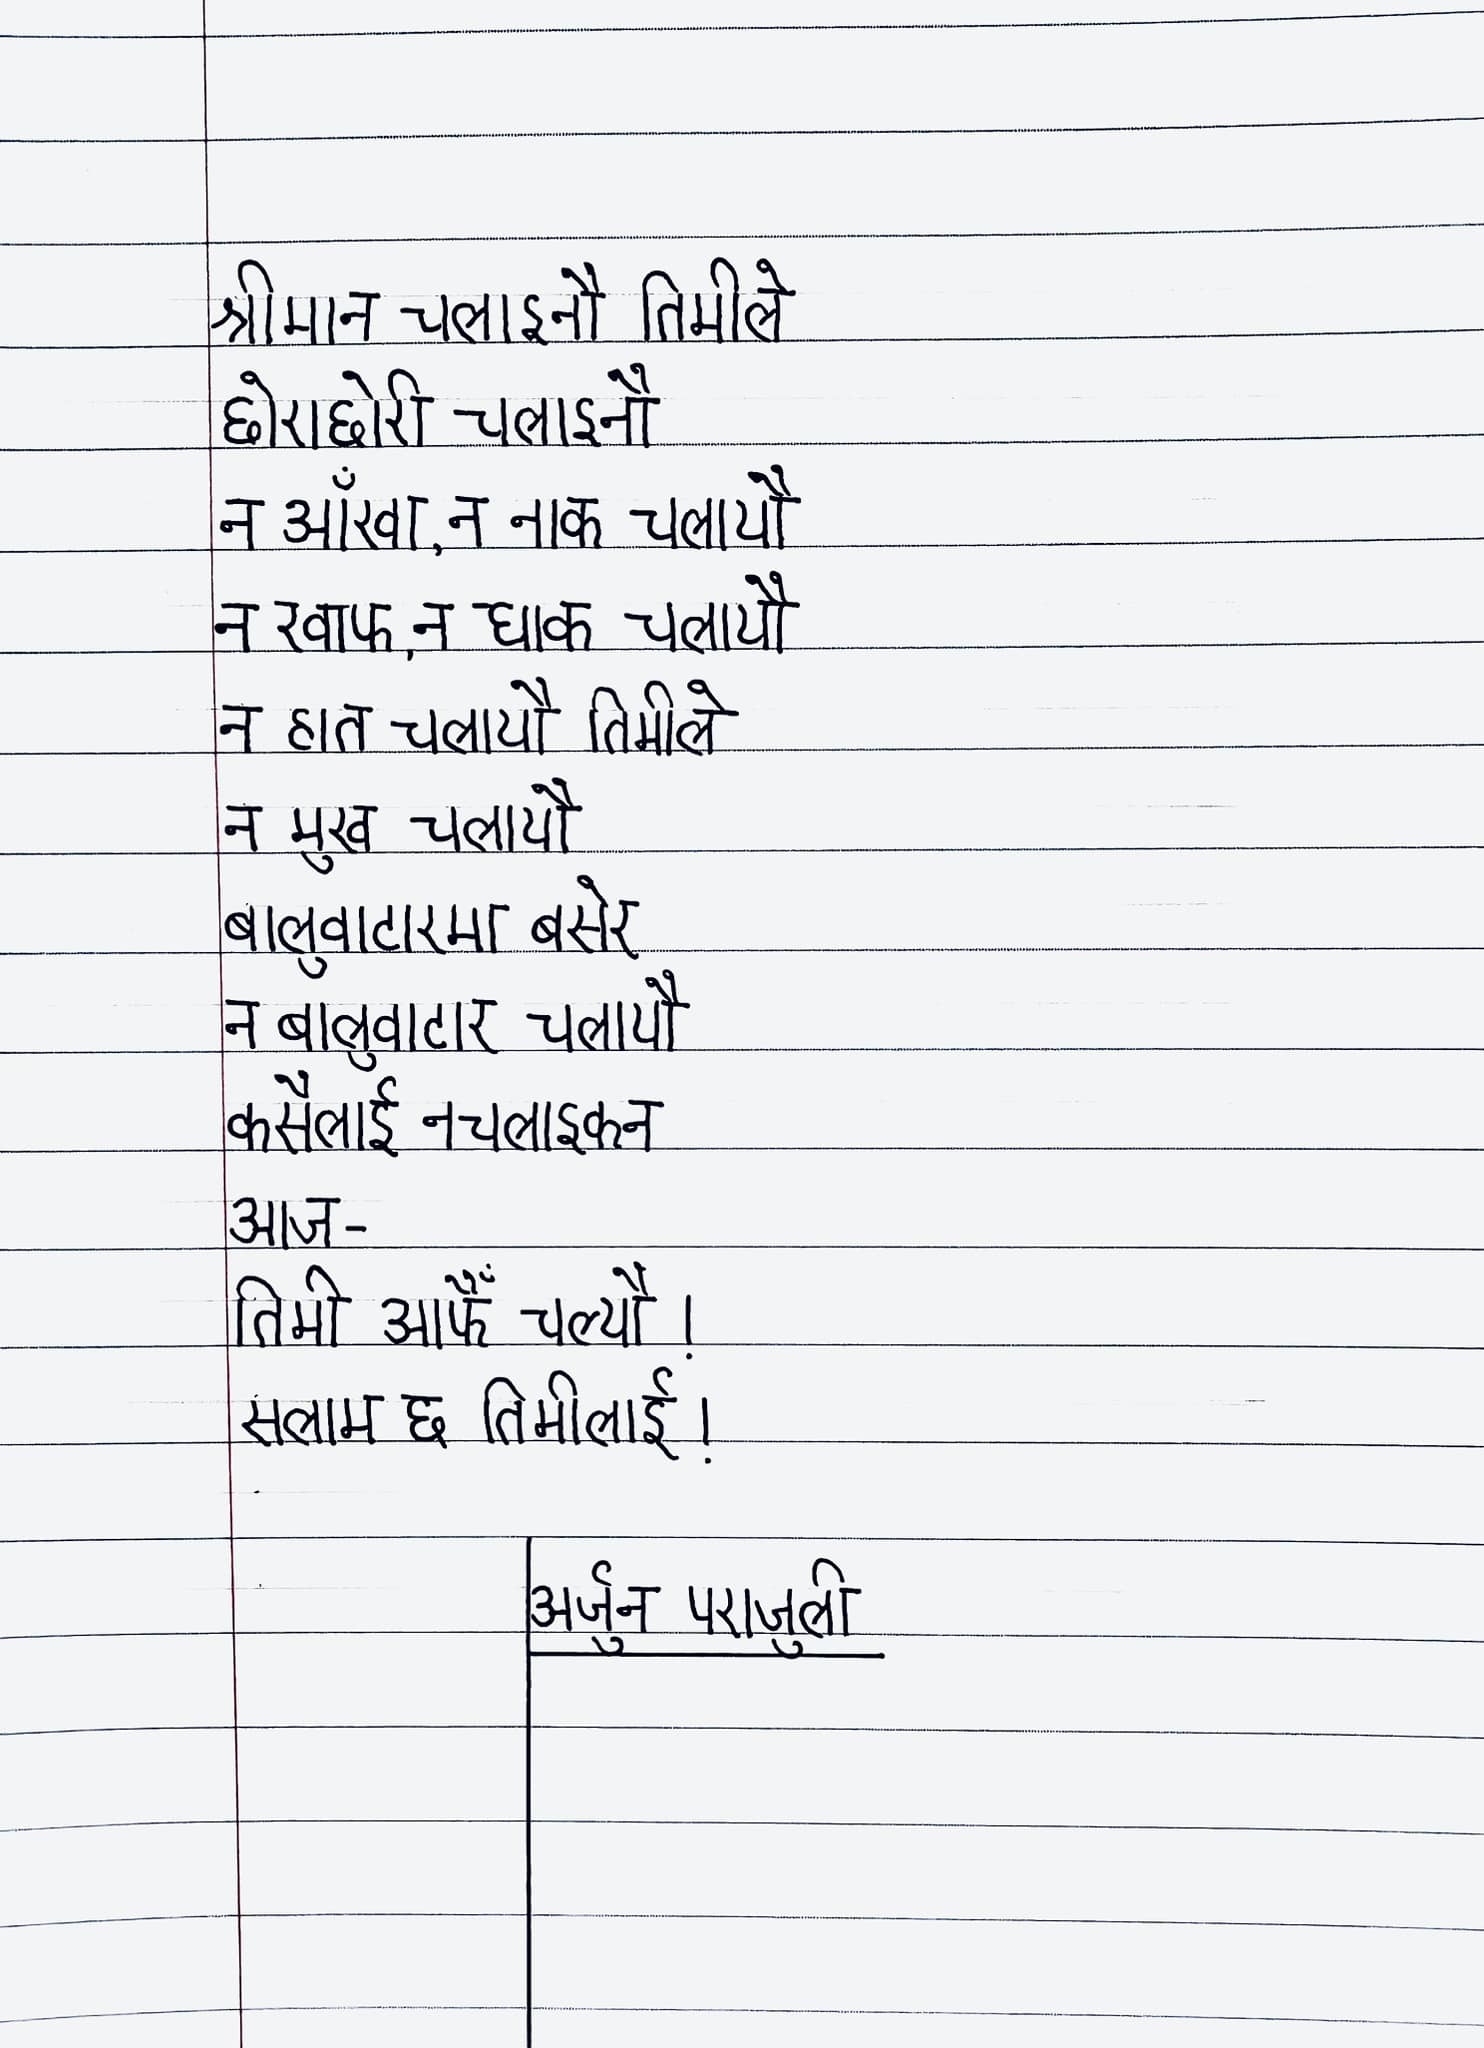 श्रीमान चलाइनौ तिमीले
छोराछोरी चलाइनौ
न आँखा, न नाक चलायौ
न ख्वाफ, न घाक चलायौ
न हात चलायौ तिमीले
न मुख चलायौ
बालुवाटारमा बसेर
न बालुवाटार चलायौ
कसैलाई नचलाइकन
आज-
तिमी आफैँ चल्यौ !
सलाम छ तिमीलाई !
अर्जुन पराजुली